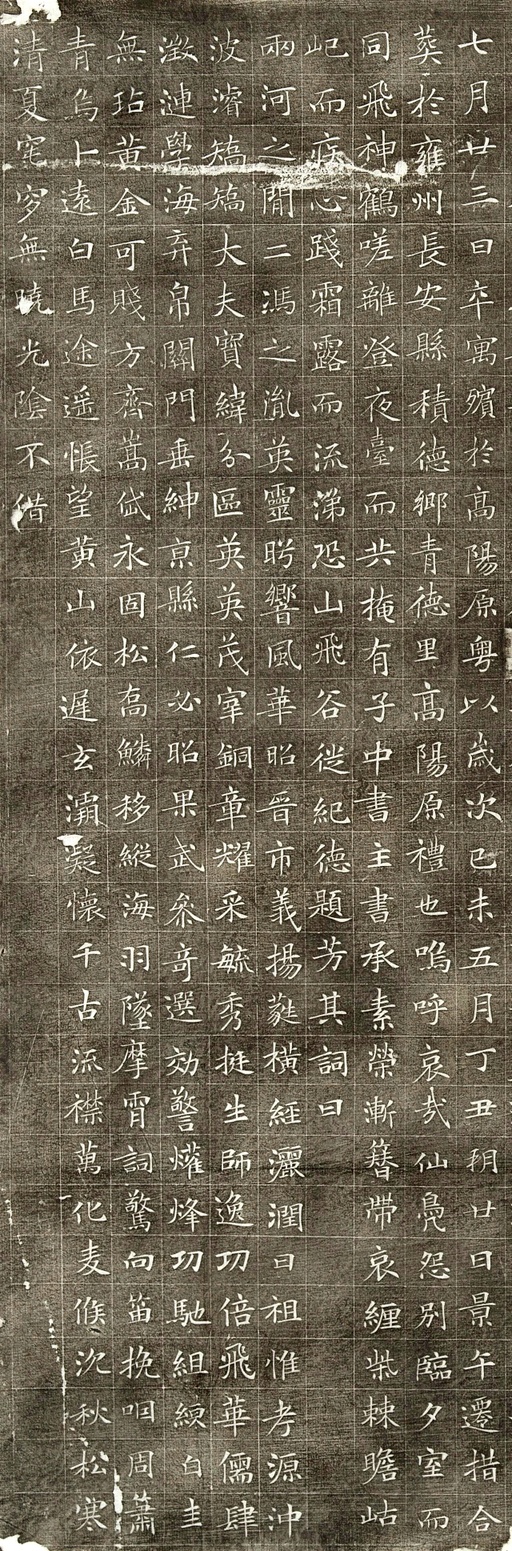 七月廿三日卒寓殯於高陽原粤以歲次己未五月丁丑朔廿日景午遷措合
葬於雍州長安縣積德鄉青德里高陽原禮也嗚呼哀哉仙鳧怨別臨夕室而
同飛神鶴嗟離登夜臺而共掩有子中書主書承素榮漸簪帶哀纏柴棘瞻岵
屺而疚心踐霜露而流涕恐山飛谷徙紀德題芳其詞曰
兩河之閒二馮之胤英靈肹響風華昭晉市義揚蕤橫經灑潤曰祖惟考源沖
波濬矯矯大夫寶緯分區英英茂宰銅章耀采毓秀挺生師逸功倍飛華儒肆
激漣學海弃帛關門垂紳京縣仁必昭果武叅奇選効警爟烽功馳組練白圭
無玷黃金可賤方齊嵩岱永固松喬鱗移縱海羽墜摩霄詞驚向笛挽咽周簫
青烏卜遠白馬途遥悵望黃山依遲玄灞凝懷千古流襟萬化麦候沉秋松寒
清夏窀穸無曉光陰不借